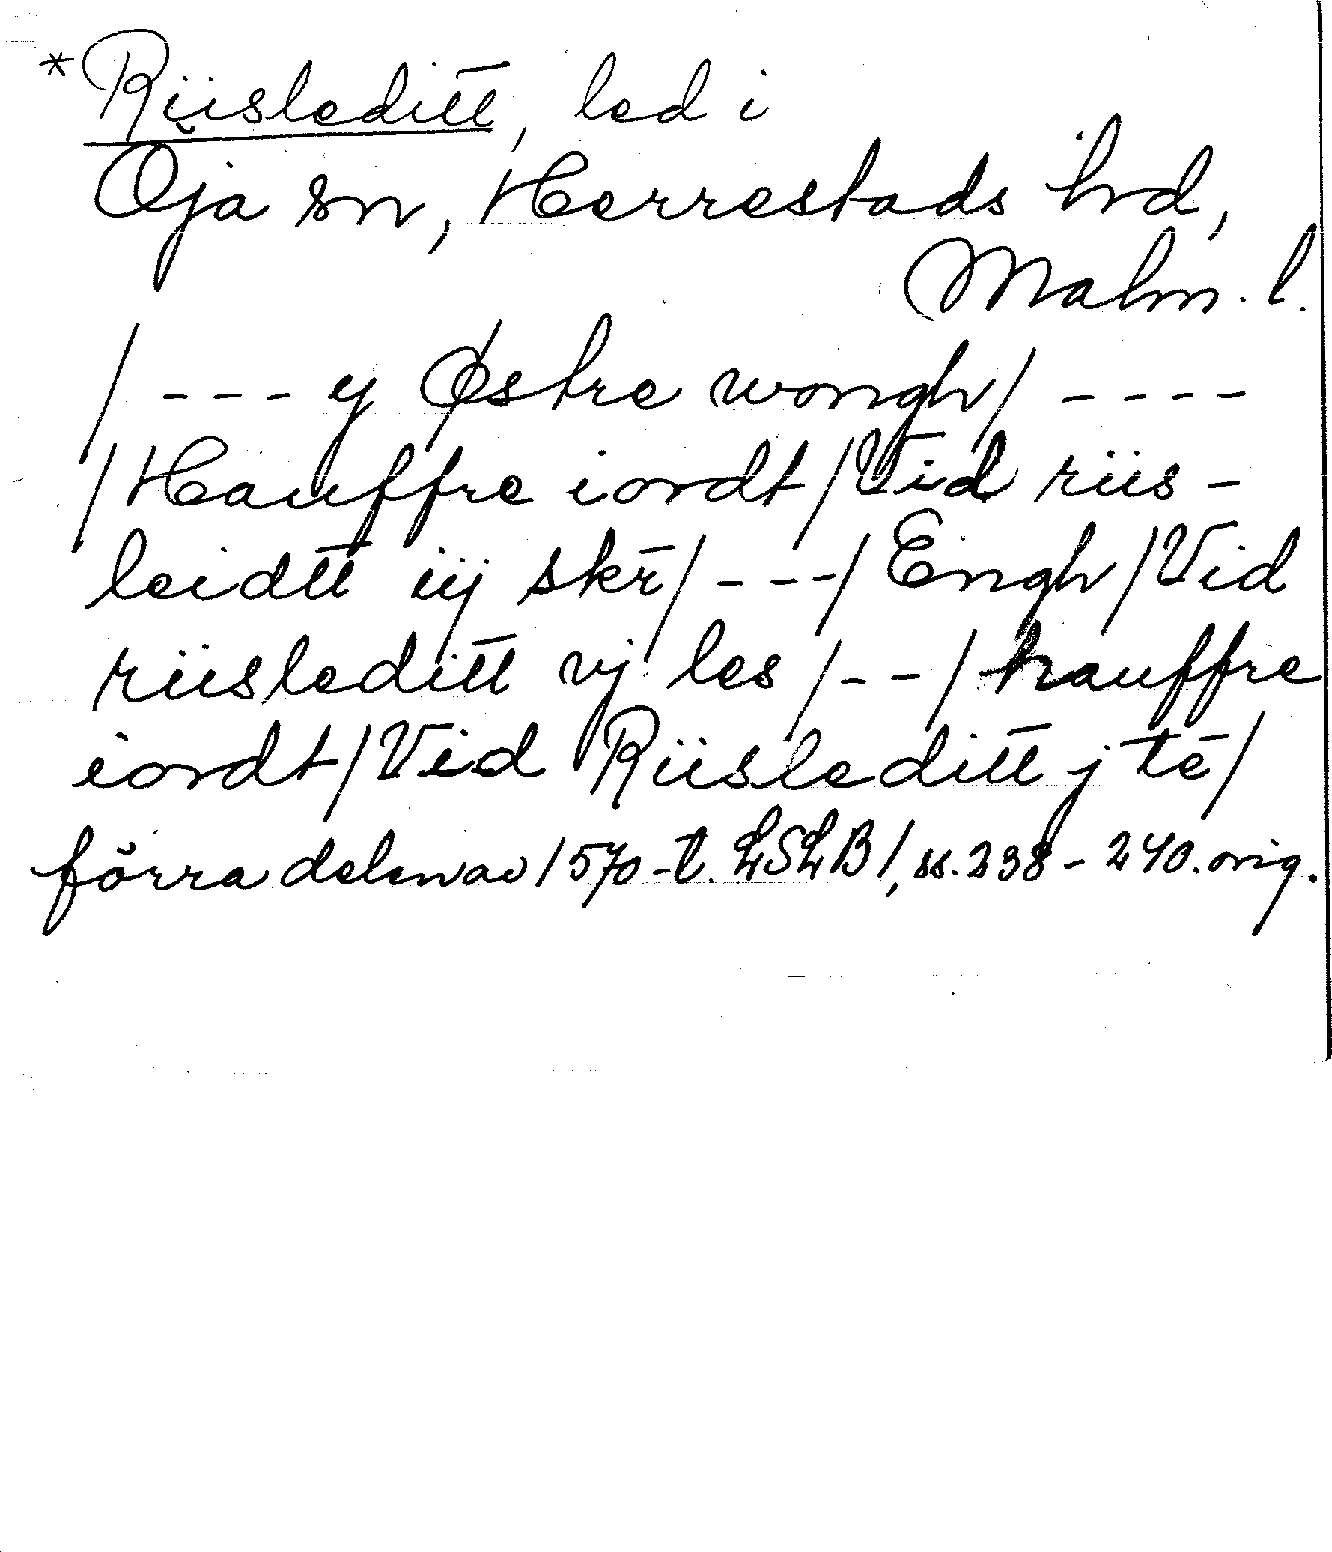 *Riisleditt, led i
Öja sn, Herrestads hrd,
Malm. l.
/ - - - y Østre wongh / - - - -
/ Hauffre iordt / Vid riis-
leidtt iij skr̄ / - - - / Engh / Vid
riisleditt vj les / - - / hauffre
iordt / Vid Riisleditt j te̅ /
förra delen av 1570-t. LSLB 1, ss. 238 - 240. orig.